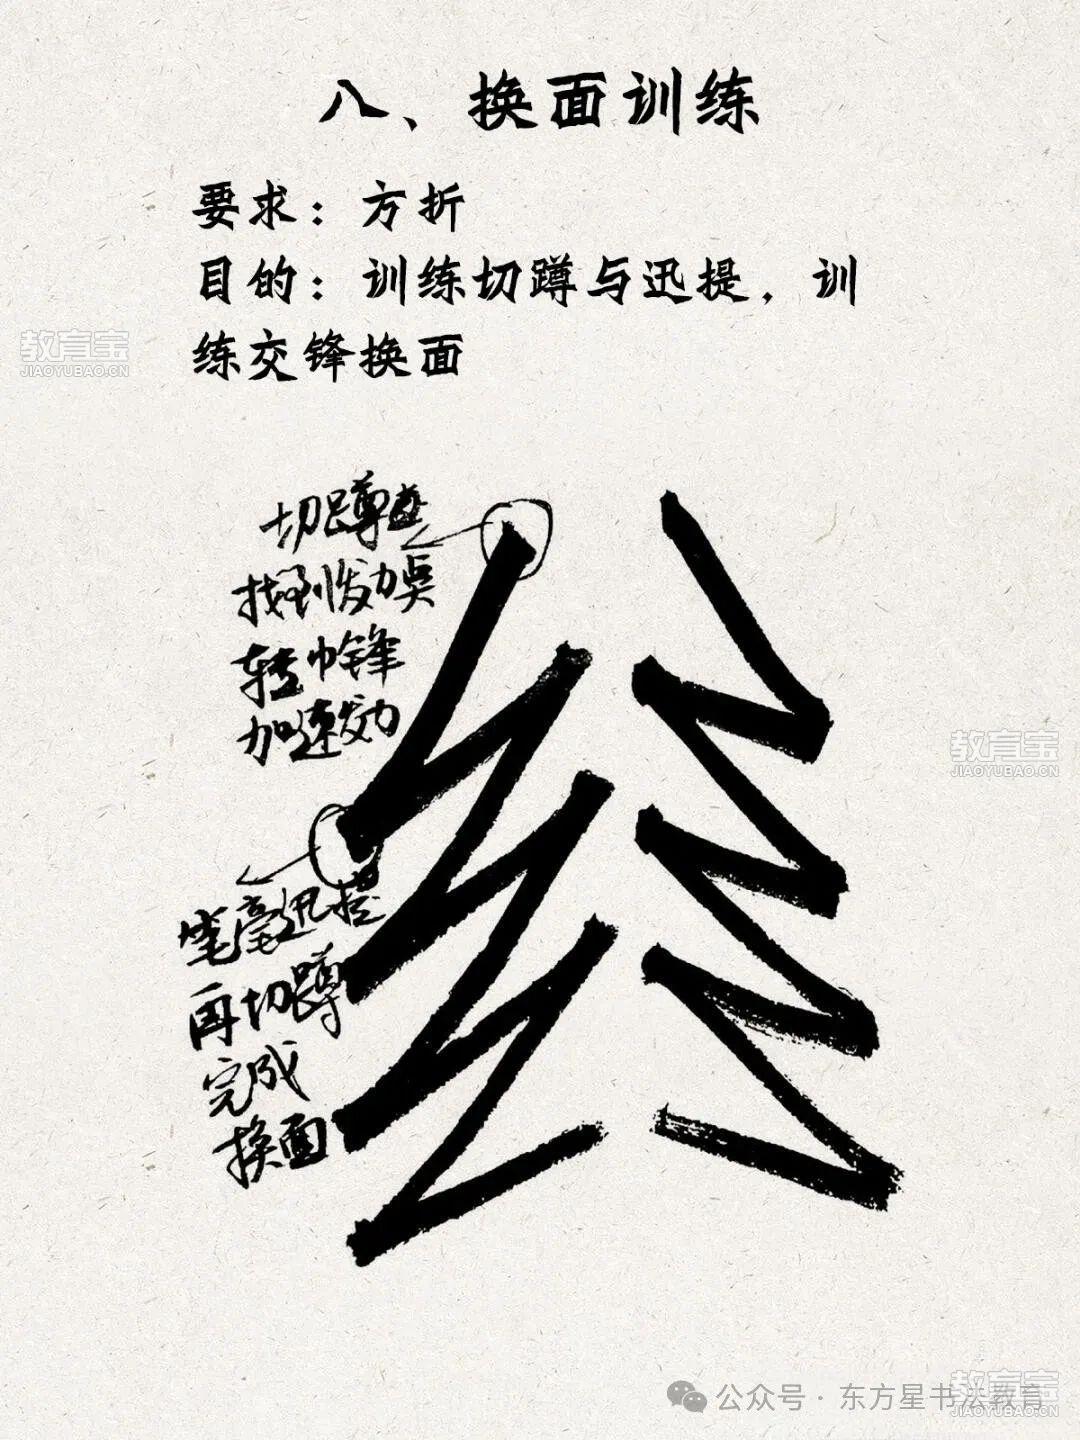 八、换面训练
要求：方折
目的：训练切蹲与迅提，训
练交锋换面
教育宝
JIAOYUBAO.CN
切蹲
找到发力点
转中锋
加速发力
教育宝
JIAOYUBAO.CN
笔毫迅提
再切蹲
完成
换面
教育宝
JIAOYUBAO.CN
公众号·东方星书法教育